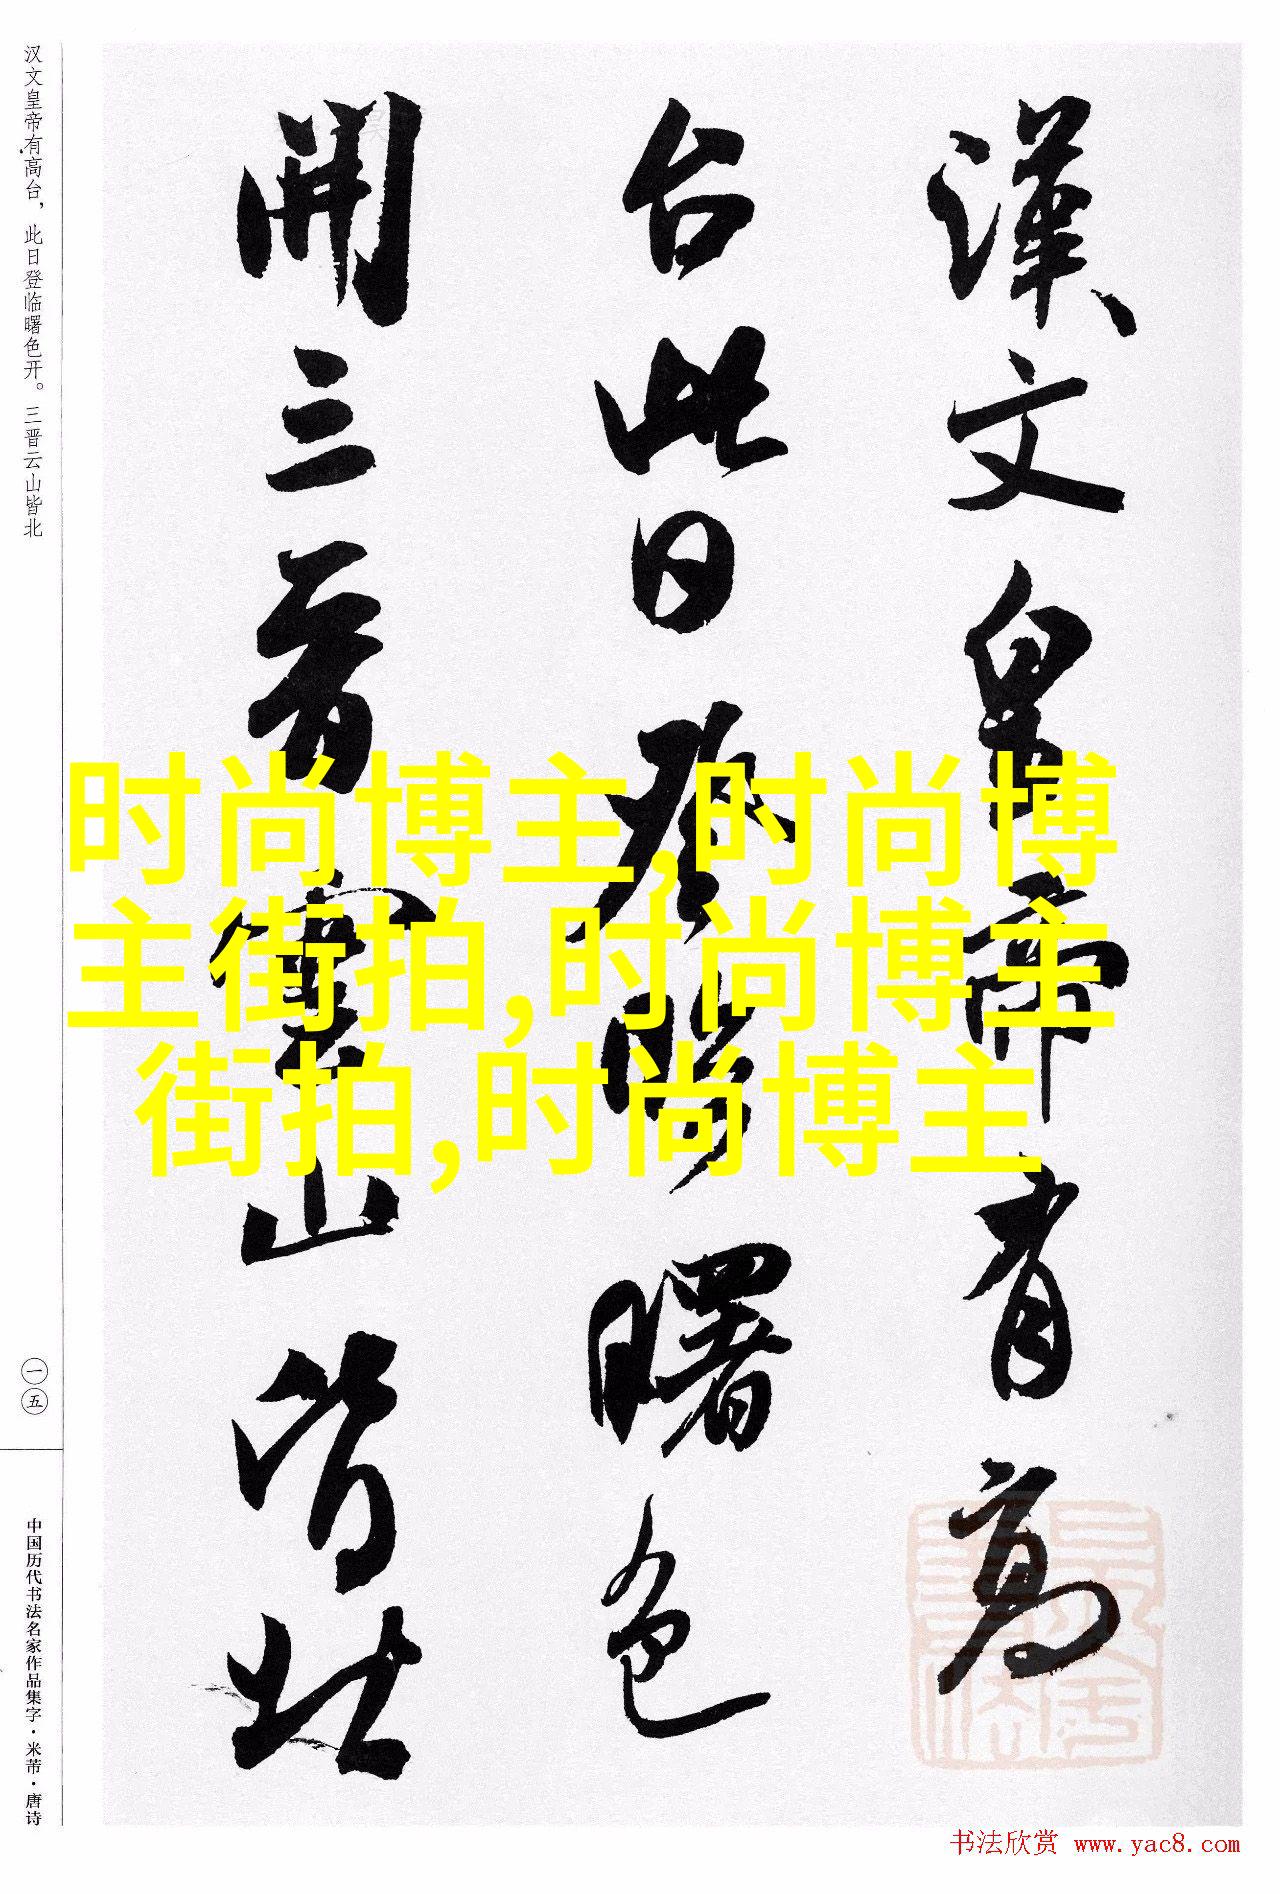 汉文皇帝有高台，此日登临曙色开。三晋云山皆北
漢文皇帝有高
台此日登臨曙色
開三晉雲山皆北
时尚博主,时尚博
主街拍,时尚博主
街拍,时尚博主
一五
中国历代书法名家作品集字·米芾·唐诗
书法欣赏 www.yac8.com